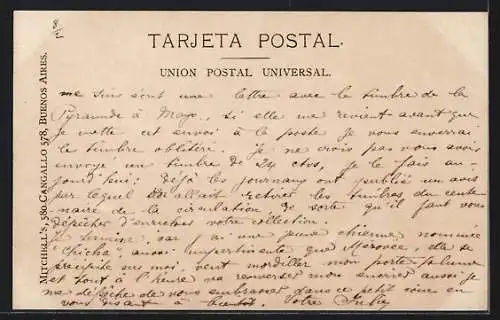 8/I
TARJETA POSTAL.
UNION POSTAL UNIVERSAL.
MITCHELL'S, 580 CANGALLO 578, BUENOS AIRES.
me suis écrit une lettre avec le timbre de la
Pyramide à Mayo, si elle me revient avant que
je mette cet envoi à la poste je vous enverrai
le timbre oblitéré. je ne crois pas vous avoir
envoyé un timbre de 24 ctvs, je le fais au-
jourd'hui; Déjà les journaux ont publié un avis
par lequel on allait retirer les timbres du cente-
naire de la circulation de sorte qu'il faut vous
dépêcher d'enrichir votre collection.
je termine, car j'ai une jeune chienne nommée
"Chicha" aussi impertinente que Merovée, elle se
précipite sur moi, veut mordiller mon porte-plume
et tout à l'heure va renverser mon encrier aussi je
me dépêche de vous embrasser dans ce petit coin en
vous disant à bientôt. Votre